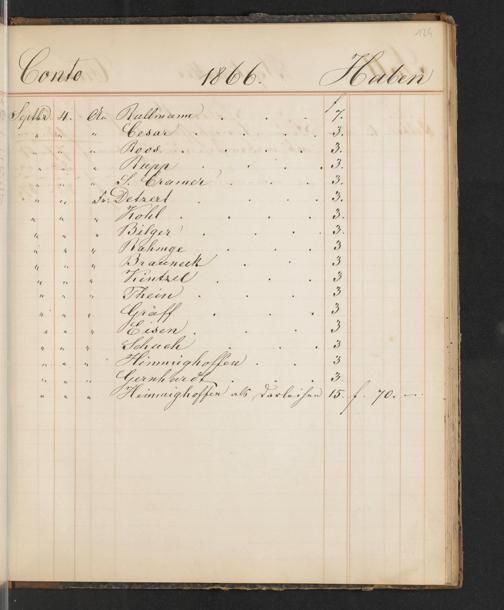 124
Conto 1866. Haben
f
Septbr 4. An Kullmann . . . . 7.
" " " Cesar . . . . 3.
" " " Roos . . . . 3.
" " " Rupp . . . . 3.
" " " S. Cramer . . . 3.
" " Fr. Detzert . . . . 3.
" " " Kohl . . . . 3.
" " " Bilger . . . . 3
" " " Rahmge . . . . 3
" " " Brauneck . . . 3
" " " Küntzel . . . 3
" " " Thein . . . . 3
" " " Gräff . . . . 3
" " " Eisen . . . . 3
" " " Schuch . . . . 3
" " " Himmighoffen . . . 3
" " " Gernhardt . . . 3.
" " " Himmighoffen als Darleihen 15. f. 70. —